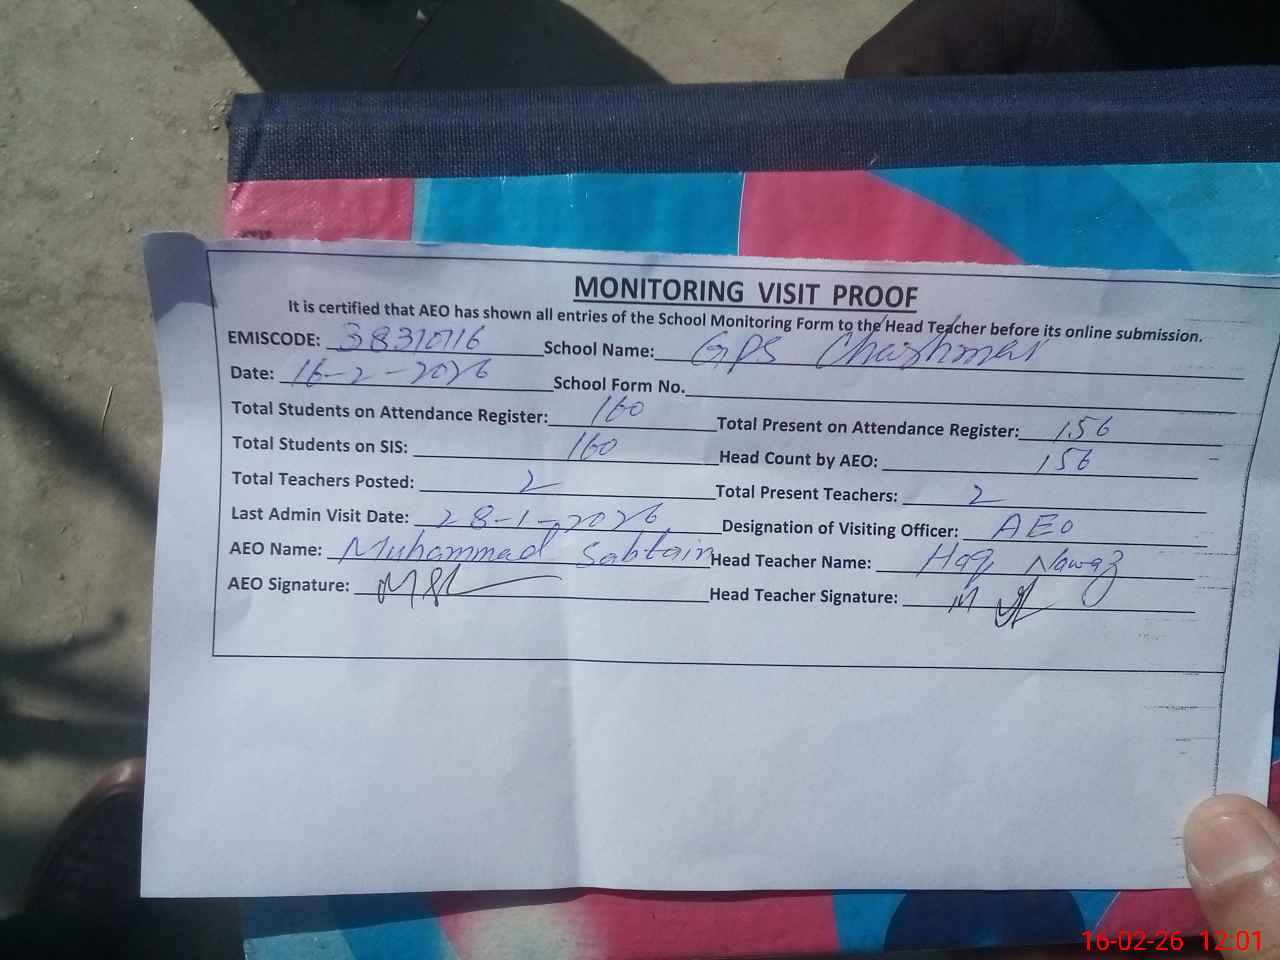 MONITORING VISIT PROOF
It is certified that AEO has shown all entries of the School Monitoring Form to the Head Teacher before its online submission.
EMISCODE: 38310716 School Name: GPS Chashmai
Date: 16-2-2026 School Form No.
Total Students on Attendance Register: 160 Total Present on Attendance Register: 156
Total Students on SIS: 160 Head Count by AEO: 156
Total Teachers Posted: 2 Total Present Teachers: 2
Last Admin Visit Date: 28-1-2026 Designation of Visiting Officer: AEO
AEO Name: Muhammad Sabtain Head Teacher Name: Haq Nawaz
AEO Signature: Head Teacher Signature:
16-02-26 12:01